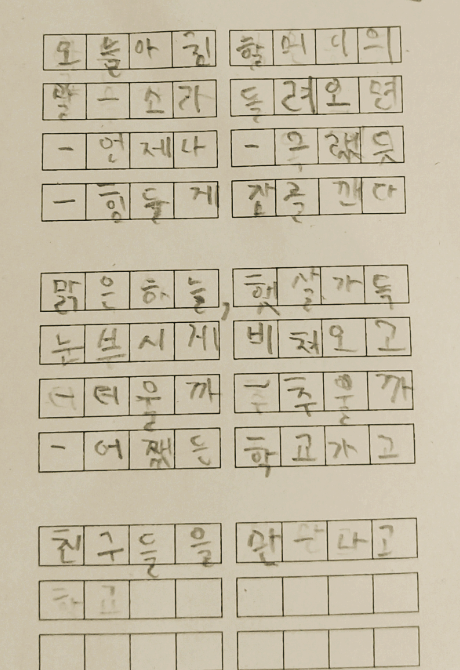 오늘아침 할머니의
말-소리 들려오면
-언제나 -그랬듯
-힘들게 잠을 깬다
맑은하늘, 햇살가득
눈부시게 비춰오고
더울까 추울까
-어쨌든 학교가고
친구들을 만-나고
학교